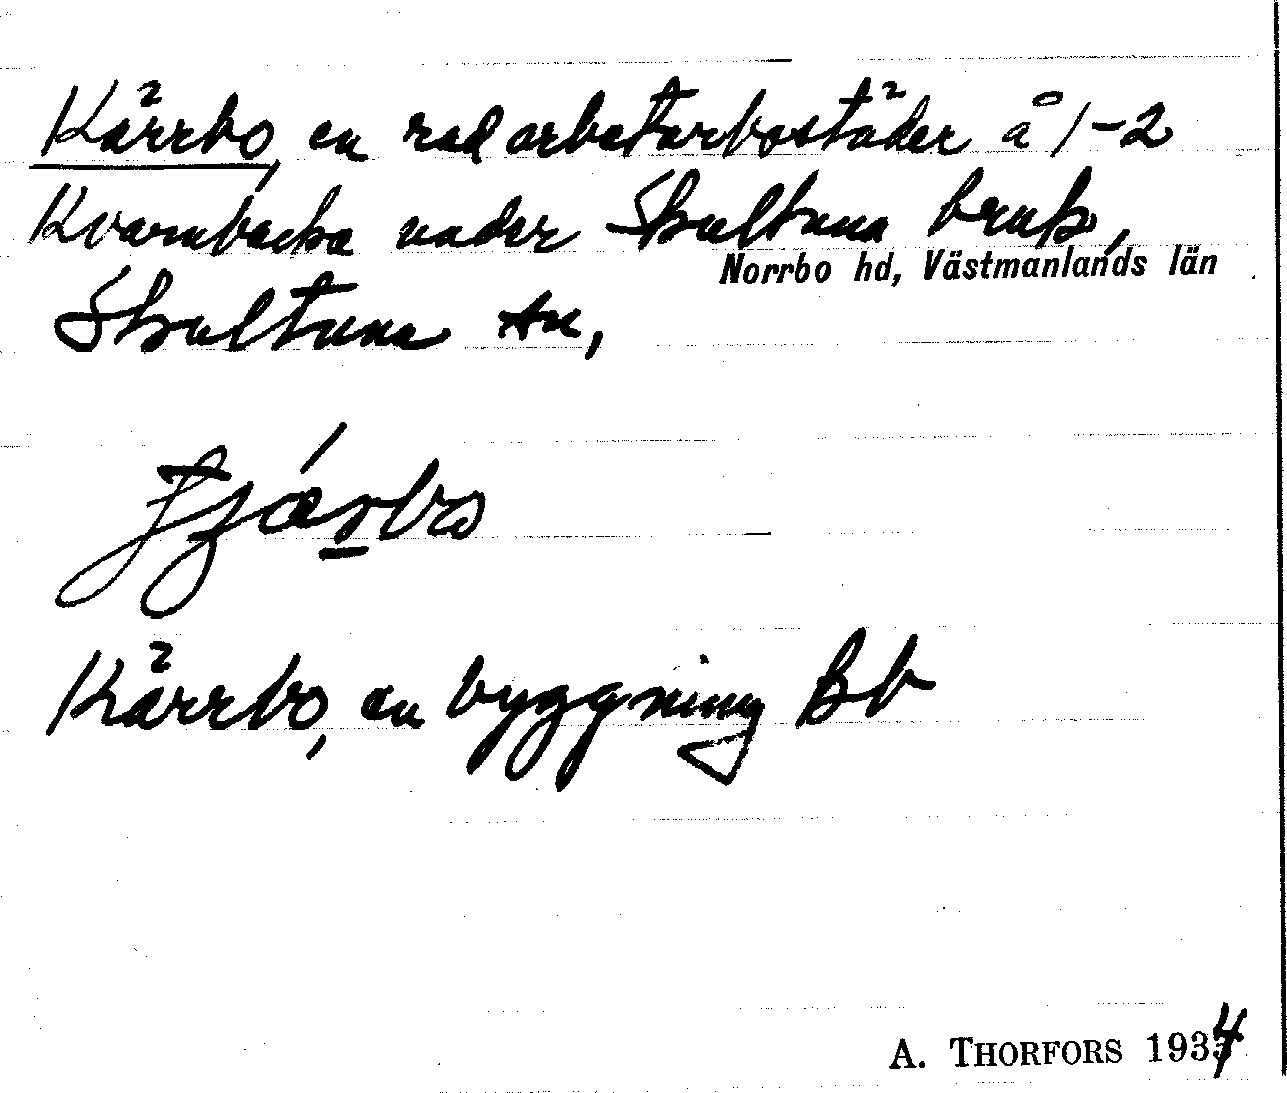 Kärrbo, en rad arbetarbostäder å 1-2
Kvarnbacka under Skultuna bruk,
Norrbo hd, Västmanlands län
Skultuna sn,
Kärrbo, en byggning Bb
A. THORFORS 1934